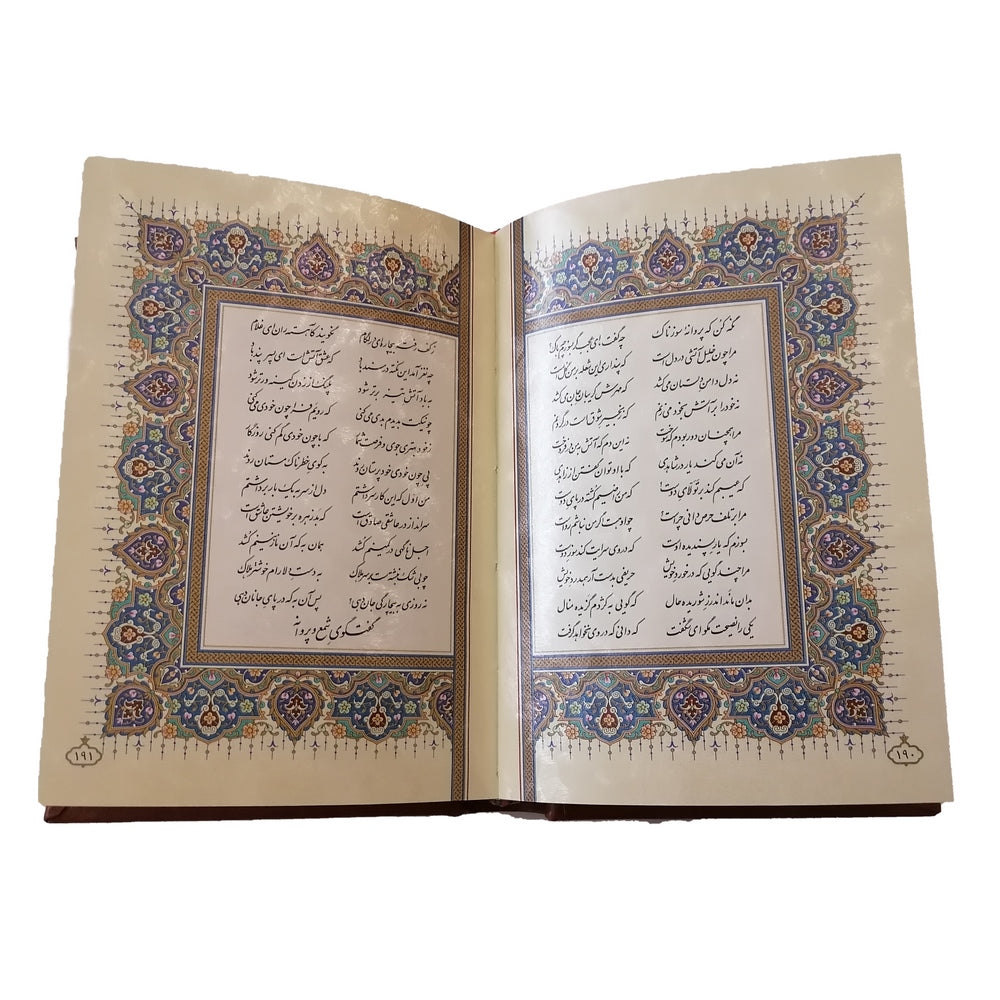 نگه کن که پروانهٔ سوزناک چه گفت، ای عجب گر بسوزم چه باک!
مرا چون خلیل آتشی در دل است که پنداری این شعله بر من گل است
نه دل دامن دلستان می‌کشد که مهرش گریبان جان می‌کشد
نه خود را بر آتش بخود می‌زنم که زنجیر شوق است در گردنم
مرا همچنان دور بودم که سوخت نه این دم که آتش به من در فروخت
نه آن می‌کند یار در شاهدی که با او توان گفتن از زاهدی
که عیبم کند بر تولّای دوست؟ که من راضیم کشته در پای دوست
مرا بر تلف حرص دانی چراست؟ چو او هست اگر من نباشم رواست
بسوزم که یار پسندیده اوست که در وی سرایت کند سوز دوست
مرا چند گویی که در خورد خویش حریفی بدست آر همدرد خویش
بدان ماند اندرز شوریده حال که گویی به کژدم گزیده منال
یکی را نصیحت مگو ای شگفت که دانی که در وی نخواهد گرفت
۱۹۰
ز کف رفته بیچاره‌ای را لگام نگویند کآهسته ران ای غلام
چه نغز آمد این نکته در سندباد که عشق آتش است ای پسر پند باد
به باد آتش تیز برتر شود پلنگ از زدن کینه ورتر شود
چو نیکت بدیدم بدی می‌کنی که رویم فرا چون خودی می‌کنی
ز خود بهتری جوی و فرصت شمار که با چون خودی گم کنی روزگار
پی چون خودی خودپرستان روند به کوی خطرناک مستان روند
من اول که این کار سر داشتم دل از سر به یک بار برداشتم
سرانداز در عاشقی صادق است که بدزهره بر خویشتن عاشق است
اجل ناگهی در کمینم کشد همان به که آن نازنینم کشد
چو بی شک نبشته ست بر سر هلاک به دست دلارام خوشتر هلاک
نه روزی به بیچارگی جان دهی؟ پس آن به که در پای جانان دهی
گفتگوی شمع و پروانه
۱۹۱